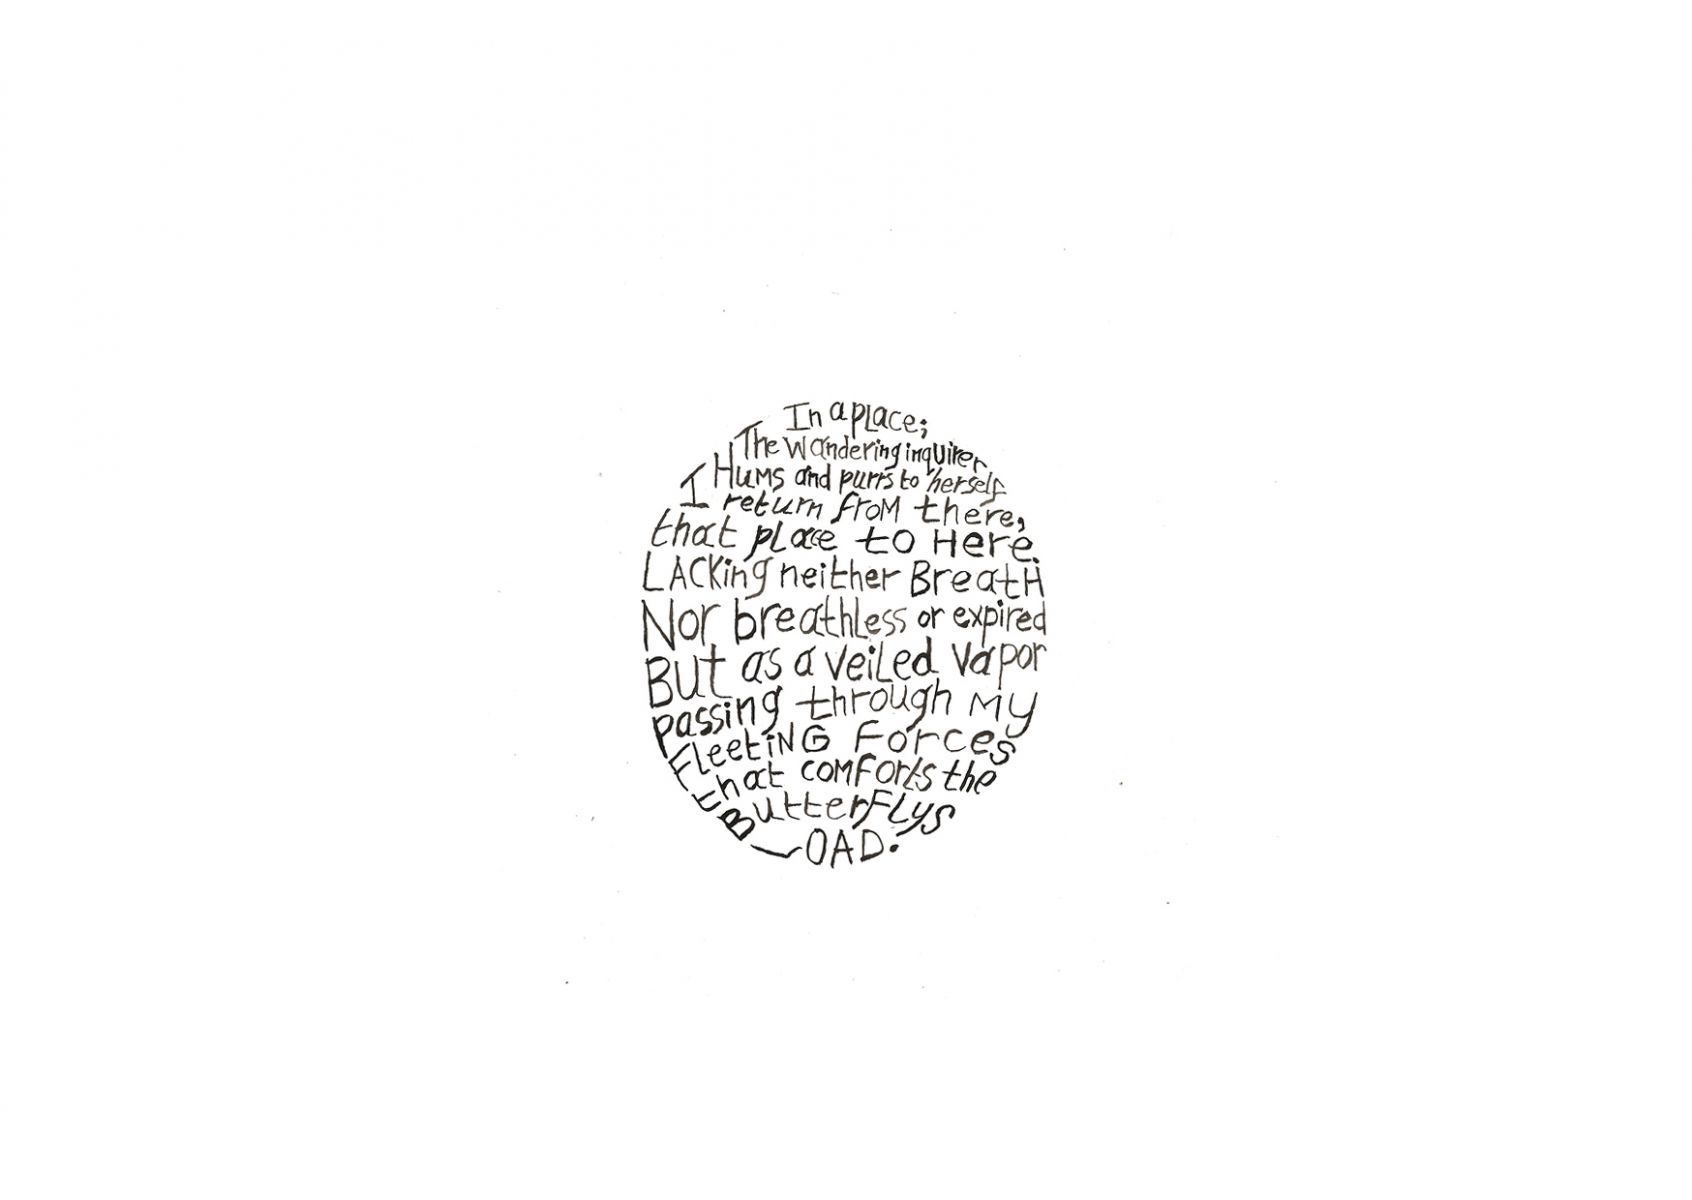 In a place;
The wandering inquirer
Hums and purrs to herself
I return from there,
that place to Here.
LACKing neither BreatH
Nor breathless or expired
But as a veiled vapor
passing through My
FleetiNG Forces
that coMForts the
ButterFlys
OAD.